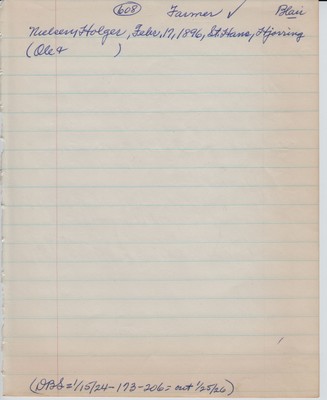 608 Farmer ✓ Blair
Nielsen, Holger, Febr. 17, 1896, St. Hans, Hjørring
(Ole & )
(DBS = 1/15/24 - 173 - 206 = out 1/25/26)